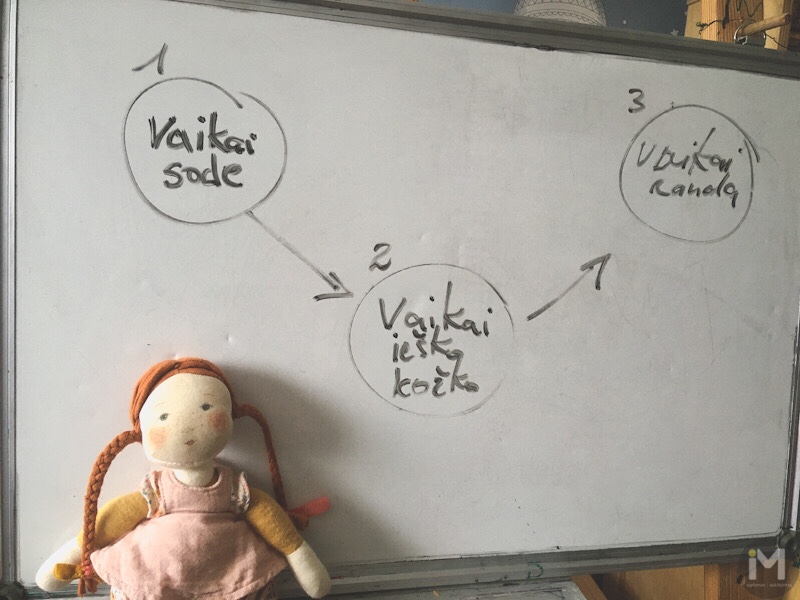 1
Vaikai
sode
2
Vaikai
ieško
kožko
3
Vaikai
randa
iM